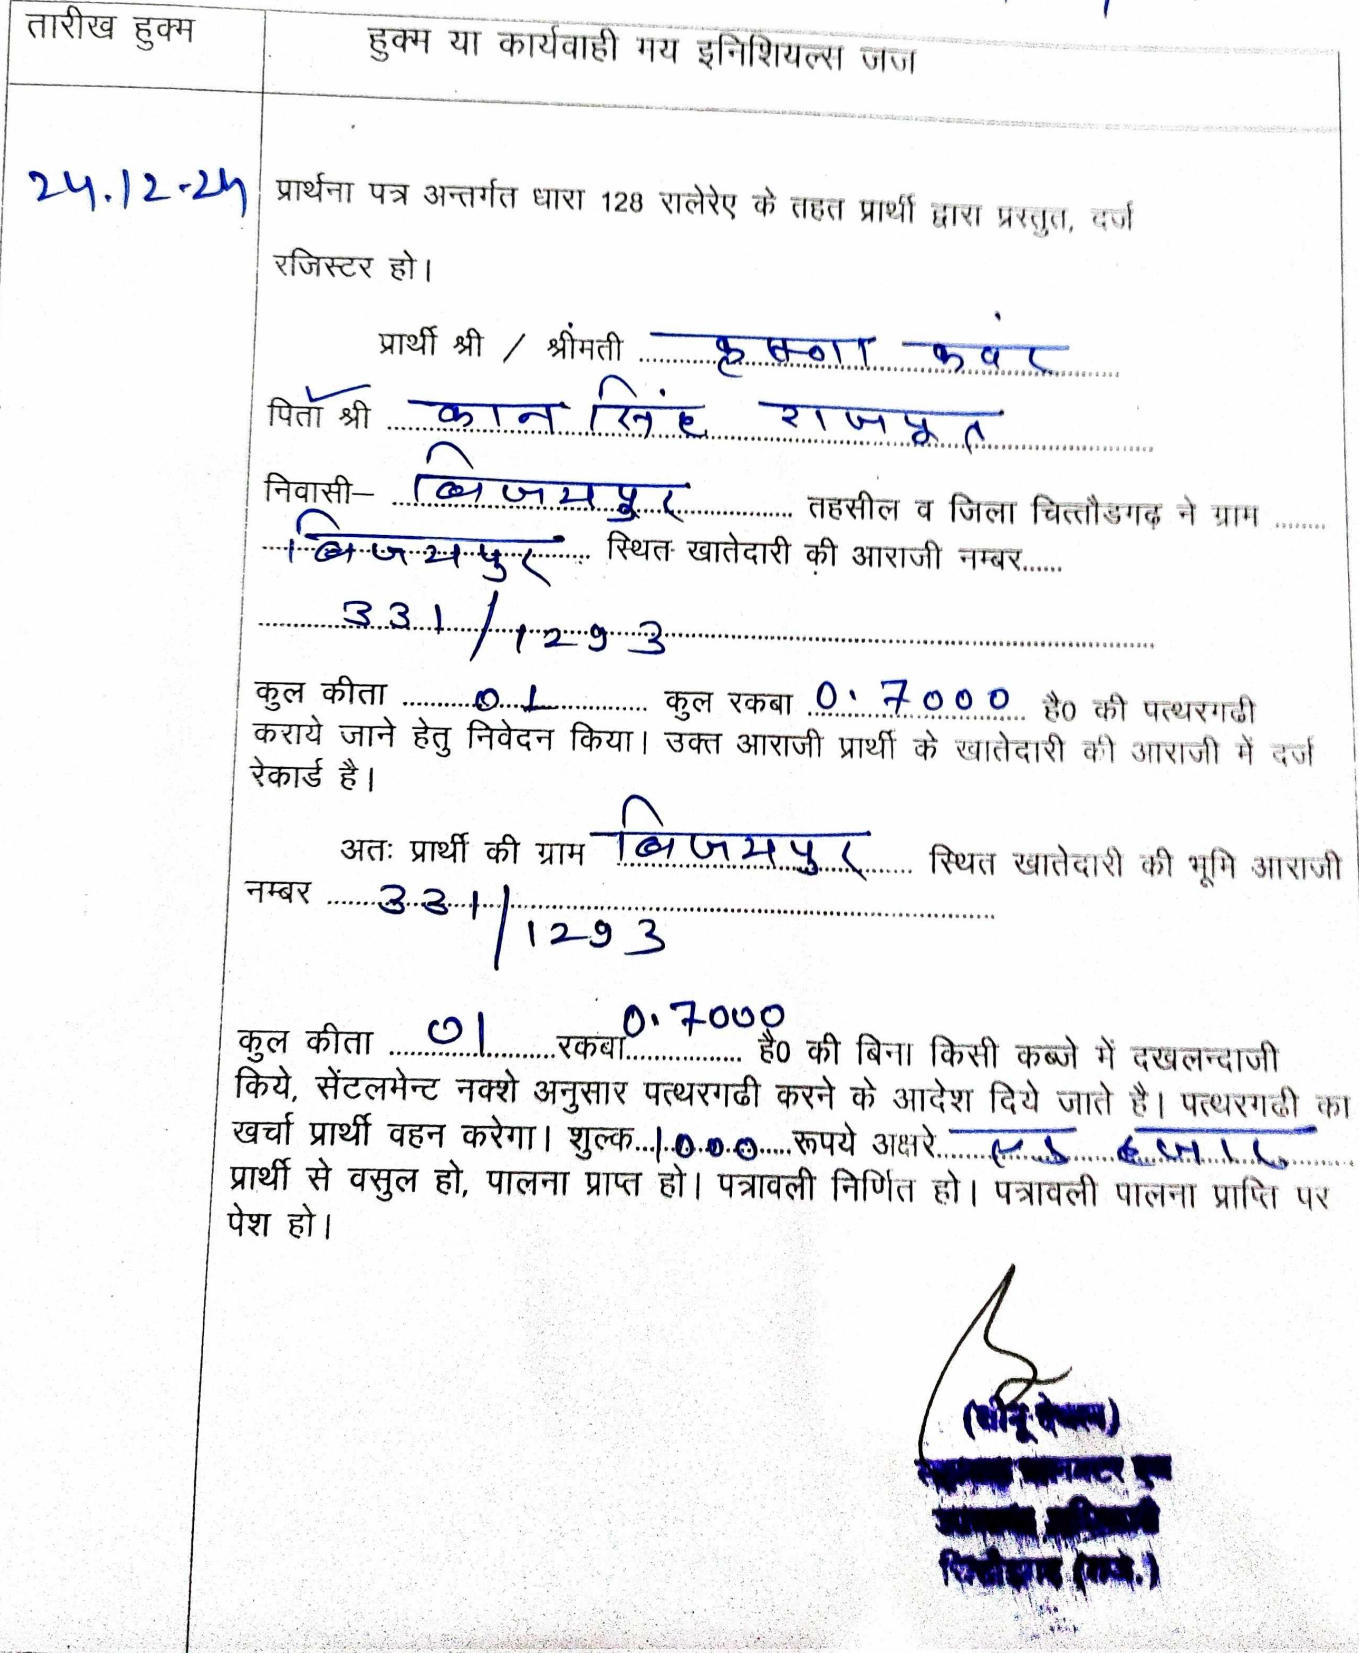 तारीख हुक्म
हुक्म या कार्यवाही मय इनिशियल्स जज
24.12-24
प्रार्थना पत्र अन्तर्गत धारा 128 रालेरेए के तहत प्रार्थी द्वारा प्रस्तुत, दर्ज
रजिस्टर हो।
प्रार्थी श्री / श्रीमती कृष्णा कवंर
पिता श्री कान सिंह राजपूत
निवासी– बिजयपुर तहसील व जिला चित्तौडगढ़ ने ग्राम
बिजयपुर स्थित खातेदारी की आराजी नम्बर
331/1293
कुल कीता 01 कुल रकबा 0.7000 है0 की पत्थरगढी
कराये जाने हेतु निवेदन किया। उक्त आराजी प्रार्थी के खातेदारी की आराजी में दर्ज
रेकार्ड है।
अतः प्रार्थी की ग्राम बिजयपुर स्थित खातेदारी की भूमि आराजी
नम्बर 331/1293
कुल कीता 01 रकबा 0.7000 है0 की बिना किसी कब्जे में दखलन्दाजी
किये, सेंटलमेन्ट नक्शे अनुसार पत्थरगढी करने के आदेश दिये जाते है। पत्थरगढी का
खर्चा प्रार्थी वहन करेगा। शुल्क 1000 रूपये अक्षरे एक हजार
प्रार्थी से वसुल हो, पालना प्राप्त हो। पत्रावली निर्णित हो। पत्रावली पालना प्राप्ति पर
पेश हो।
चित्तौड़गढ़ (राज.)